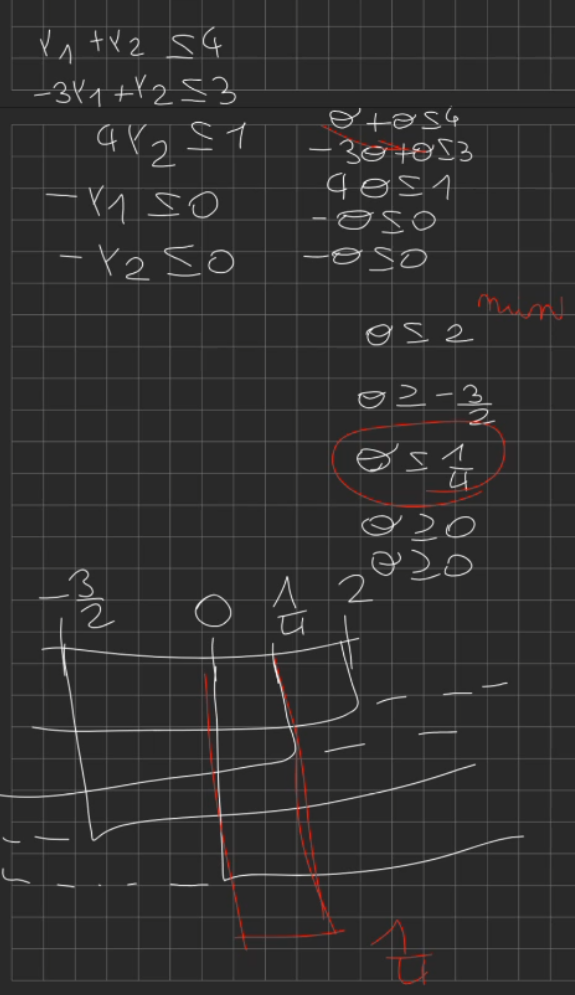 Y1 + Y2 ≤ 4
-3Y1 + Y2 ≤ 3
4Y2 ≤ 1
-Y1 ≤ 0
-Y2 ≤ 0
θ + θ ≤ 4
-3θ + θ ≤ 3
4θ ≤ 1
-θ ≤ 0
-θ ≤ 0
min
θ ≤ 2
θ ≥ -3/2
θ ≤ 1/4
θ ≥ 0
θ ≥ 0
-3/2 0 1/4 2
1/4